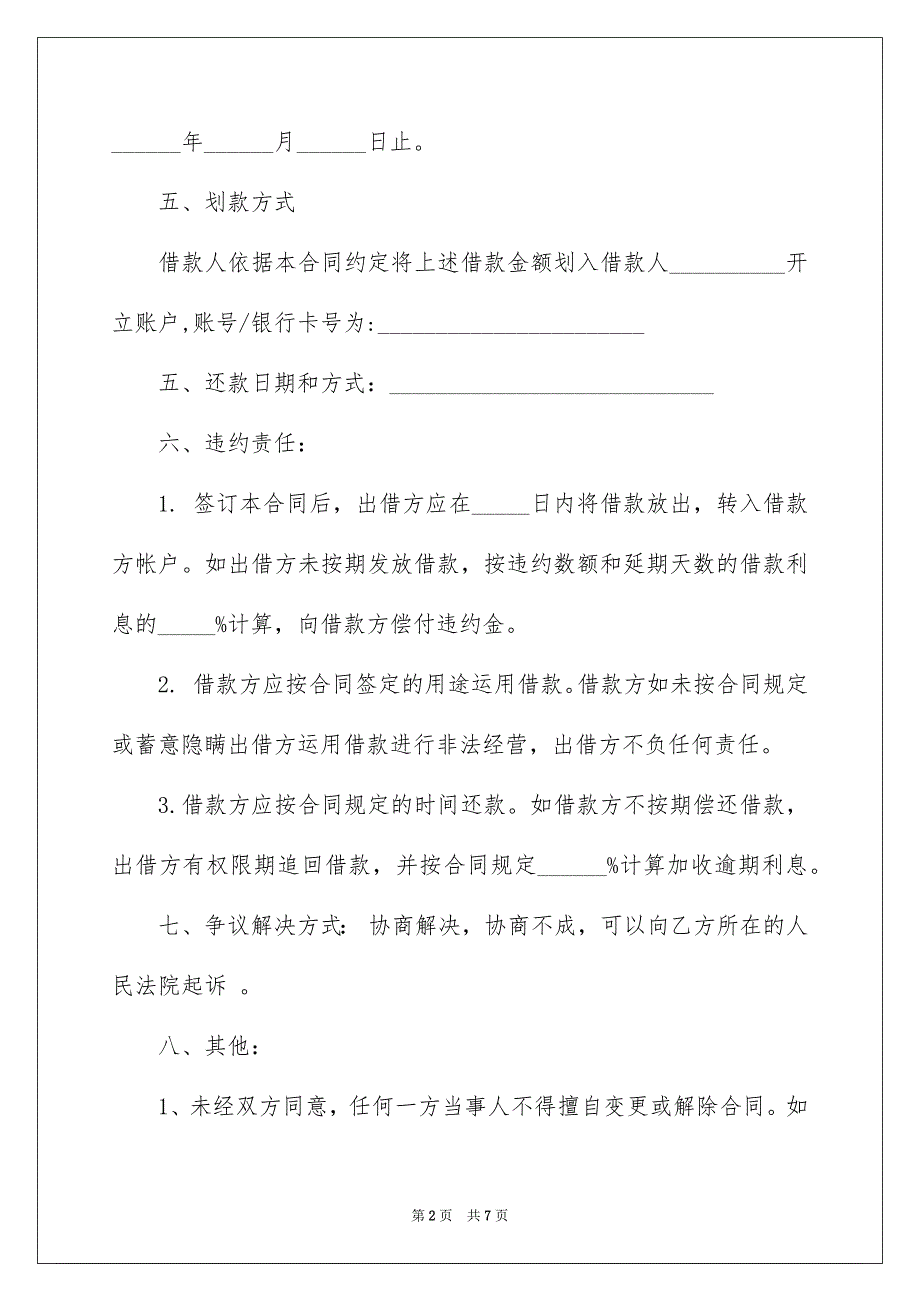 ______年______月______日止。
五、划款方式
借款人依据本合同约定将上述借款金额划入借款人__________开
立账户,账号/银行卡号为:_______________________
五、还款日期和方式：____________________________
六、违约责任：
1. 签订本合同后，出借方应在_____日内将借款放出，转入借款
方帐户。如出借方未按期发放借款，按违约数额和延期天数的借款利
息的_____%计算，向借款方偿付违约金。
2. 借款方应按合同签定的用途运用借款。借款方如未按合同规定
或蓄意隐瞒出借方运用借款进行非法经营，出借方不负任何责任。
3.借款方应按合同规定的时间还款。如借款方不按期偿还借款，
出借方有权限期追回借款，并按合同规定______%计算加收逾期利息。
七、争议解决方式： 协商解决，协商不成，可以向乙方所在的人
民法院起诉 。
八、其他：
1、未经双方同意，任何一方当事人不得擅自变更或解除合同。如
第 2 页 共 7 页